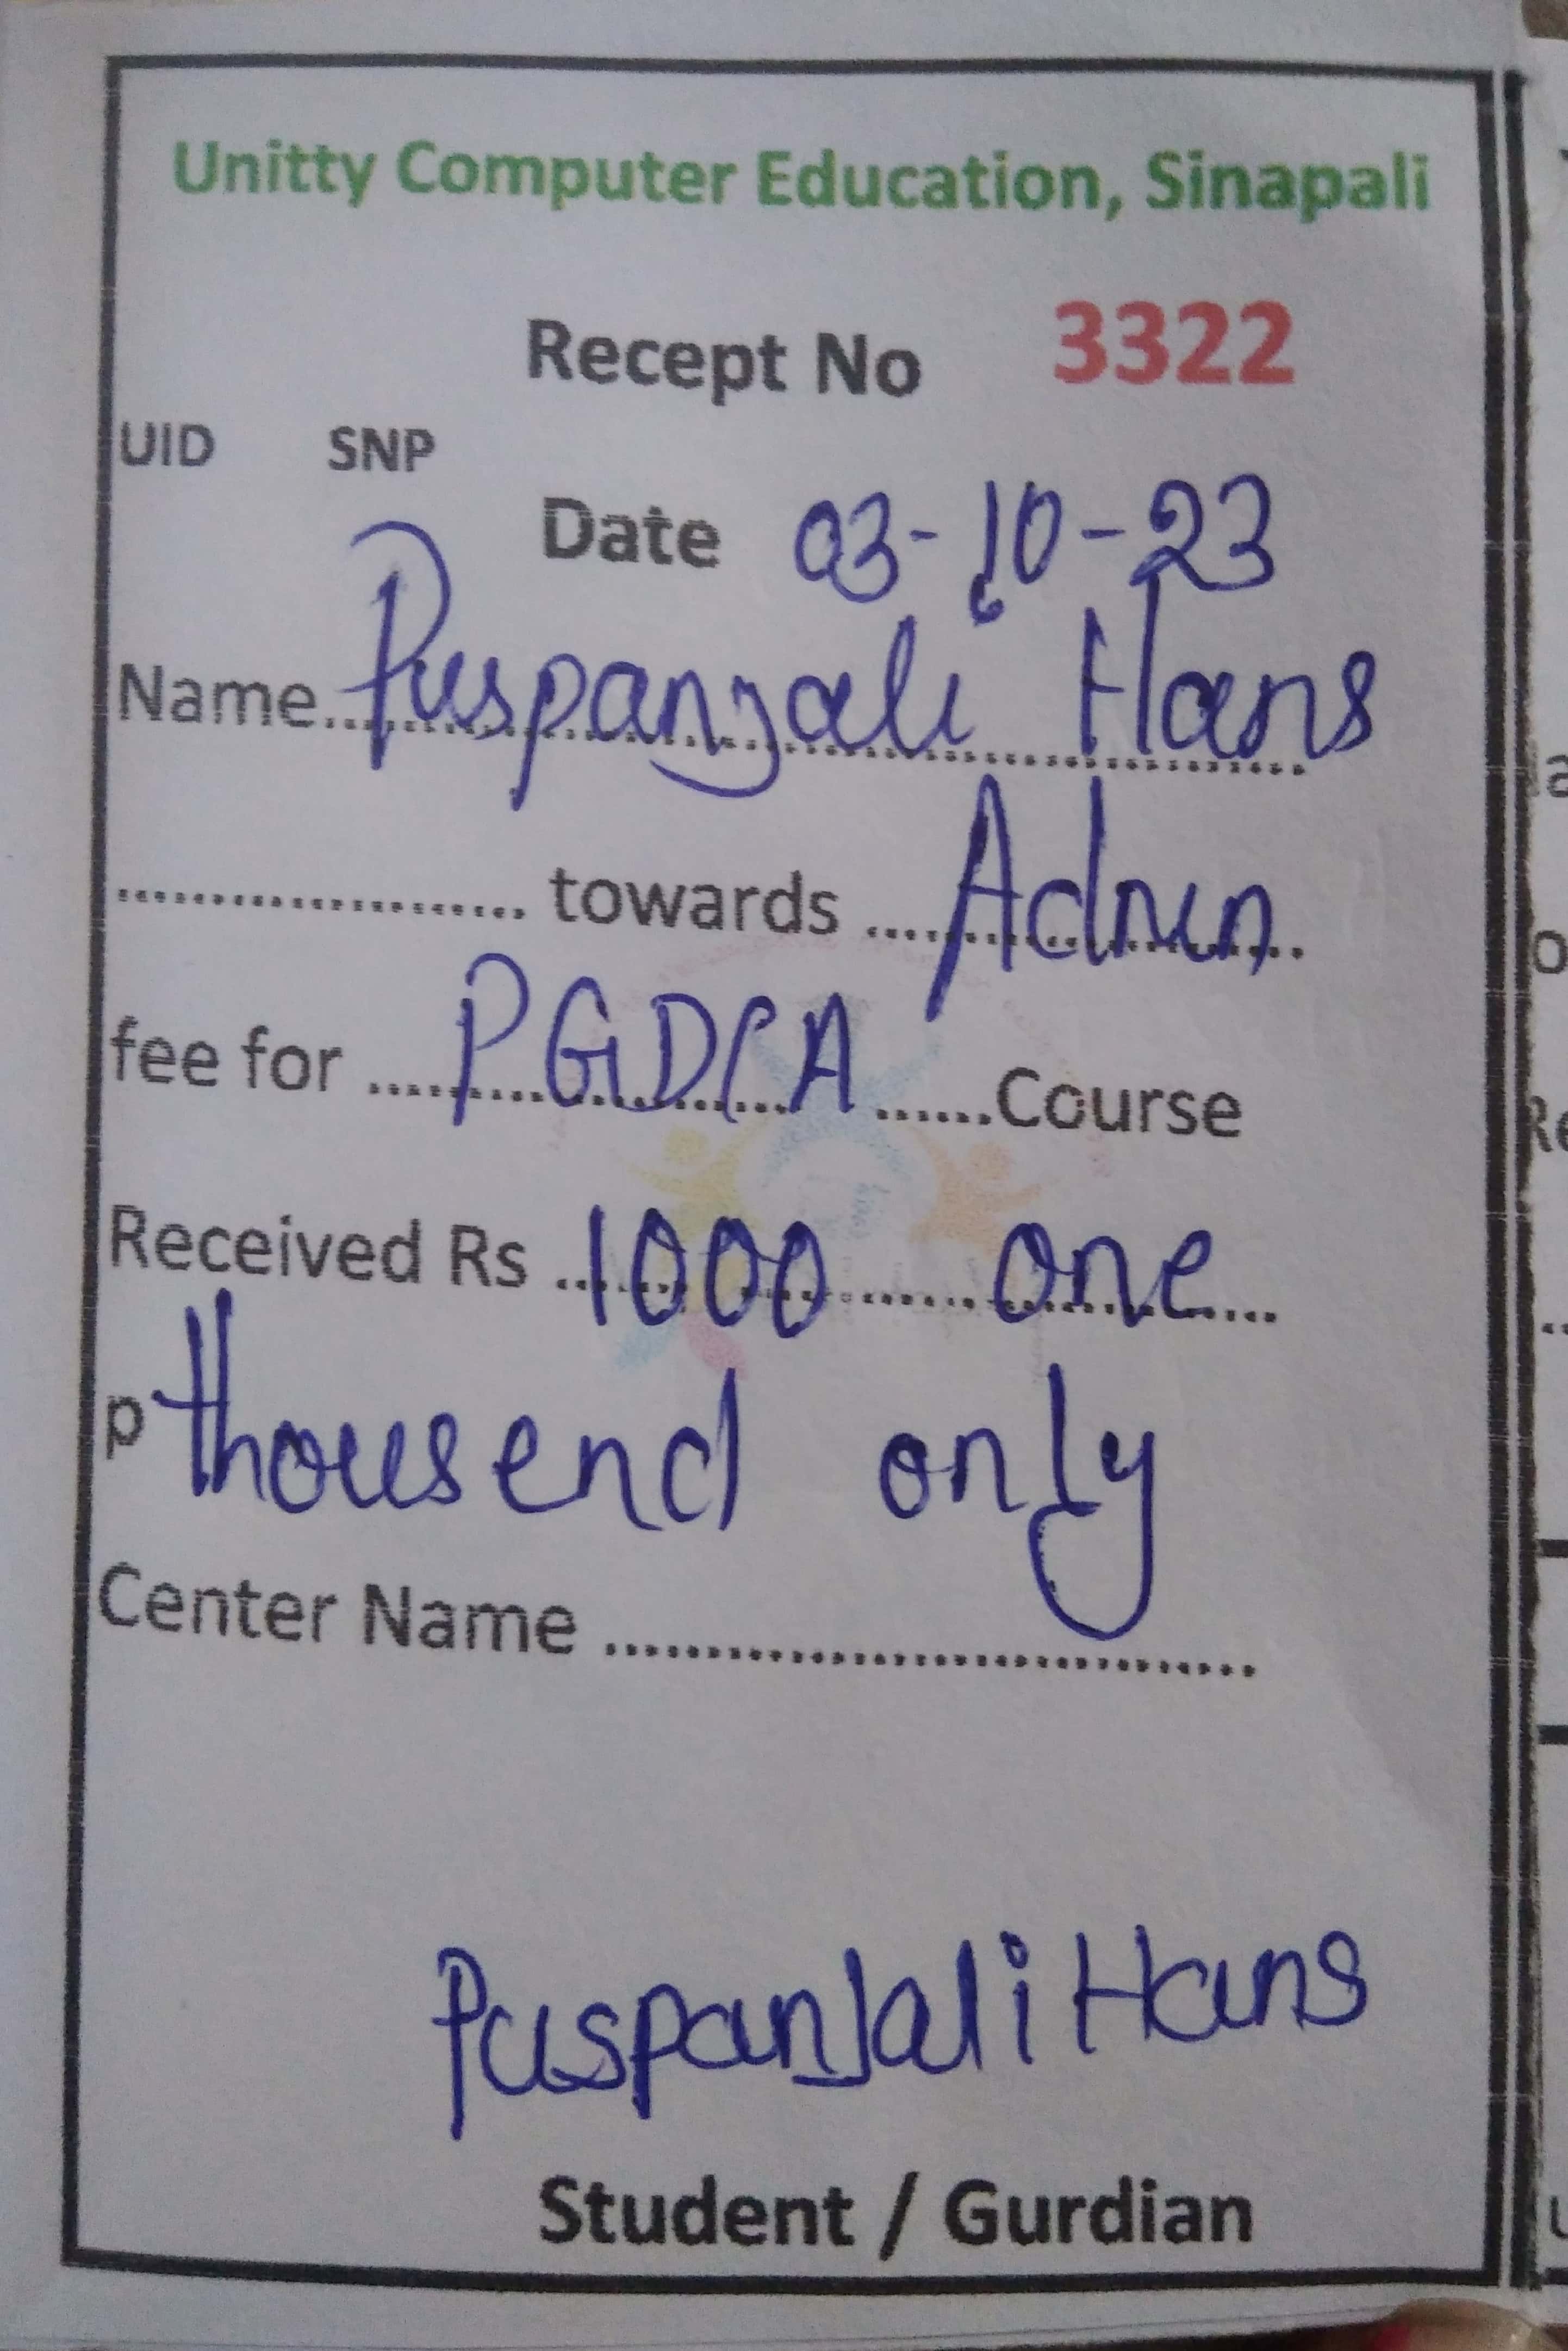 Unitty Computer Education, Sinapali
Recept No 3322
UID SNP
Date 03-10-23
Name Puspanjali Hans
towards Admn
fee for PGDCA Course
Received Rs 1000 one
p thousend only
Center Name
Puspanjali Hans
Student / Gurdian